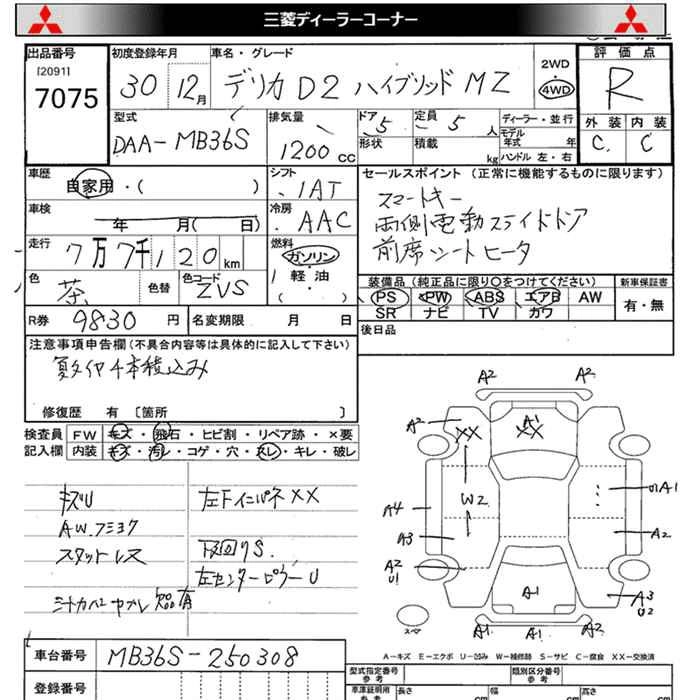 三菱ディーラーコーナー
出品番号
[2091]
7075
初度登録年月
30 12月
車名・グレード
デリカD2 ハイブリッド MZ
2WD
・
4WD
評価点
R
外装 内装
C C
型式
DAA-MB36S
排気量
1200 cc
ドア 5
形状
定員 5 人
積載 kg
ディーラー・並行
モデル年式 年
ハンドル 左・右
車歴
自家用・( )
シフト
IAT
車検
年 月( 日)
冷房
AAC
走行
7万7千120km
燃料
ガソリン
・
軽油
( )
色
茶
色替
色コード
ZVS
R券 9830円
名変期限 月 日
セールスポイント(正常に機能するものに限ります)
スマートキー
両側電動スライドドア
前席シートヒータ
装備品(純正品に限り○をつけてください)
PS PW ABS エアB AW
SR ナビ TV カワ
新車保証書
有・無
後日品
注意事項申告欄(不具合内容等は具体的に記入して下さい)
夏タイヤ4本積込み
修復歴 有〔箇所 〕
検査員記入欄
FW キズ・飛石・ヒビ割・リペア跡・×要
内装 キズ・汚レ・コゲ・穴・スレ・キレ・破レ
キズU
AW.アミ37
スタットレス
左FインパネXX
下回りS.
左センターピラーU
A2 A2
A2 XX A1 XX
W2
A4 A3
A2 U1
U1A1
A2
A1
A3 U2
A1 A1
スペア
A-キズ E-エクボ U-凹み W-補修跡 S-サビ C-腐食 XX-交換済
車台番号
MB36S-250308
登録番号
型式指定番号 参考
類別区分番号 参考
車庫証明用 参考
長さ cm 幅 cm 高さ cm